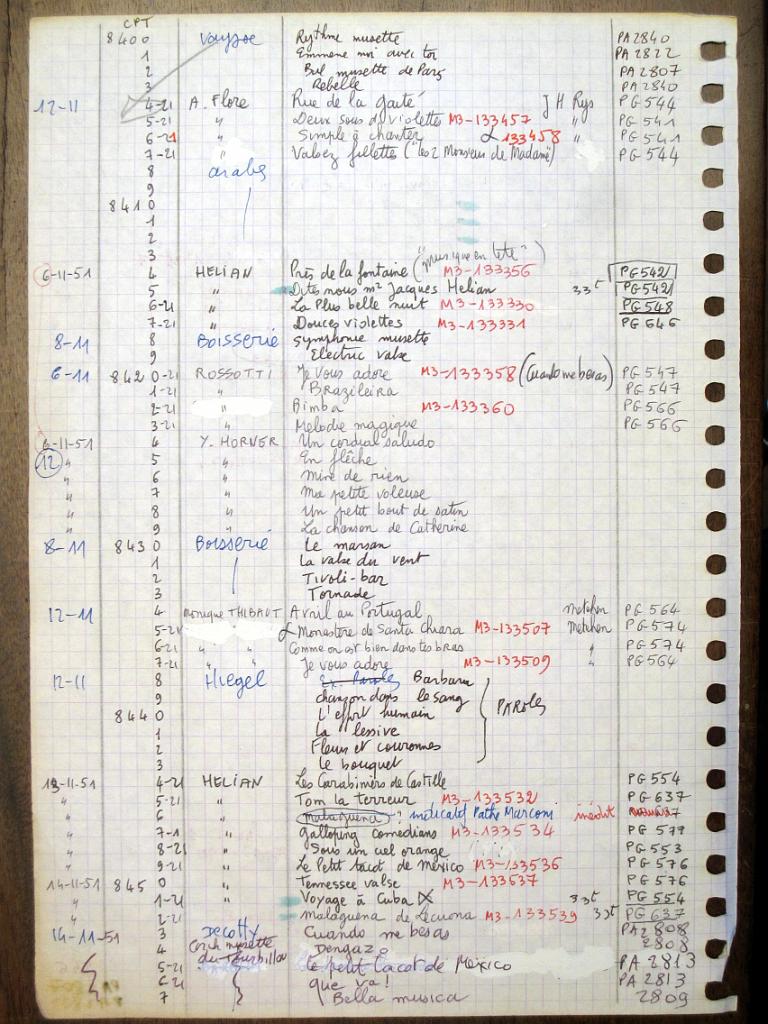 CPT
8400 Rythme musette PA 2840
1 Emmène moi avec toi PA 2822
2 Bal musette de Paris PA 2807
3 Rebelle PA 2840
12-11 4-21 A. Flore Rue de la gaité J H Rys PG 544
5-21 " Deux sous d violettes M3-133457 " PG 541
6-21 " Simple à chanter 133458 " PG 541
7-21 " Valsez fillettes ("les 2 Monsieur de Madame) PG 544
8 arabes
9
8410
1
2
3 ("musique en tête")
6-11-51 4 HELIAN Près de la fontaine M3-133356 PG 542
5 " Dites nous mr Jacques Helian 33t PG 542
6-21 " La Plus belle nuit M3-133330 PG 548
7-21 " Douces violettes M3-133331 PG 646
8-11 8 BOISSERIE Symphonie musette
9 Electric valse
6-11 8420-21 ROSSOTTI Je vous adore M3-133358 (Cuando me besas) PG 547
1-21 " Brazileira PG 547
2-21 " Bimba M3-133360 PG 566
3-21 " Melodie magique PG 566
6-11-51 4 Y. HORNER Un cordial saludo
12 " 5 " En flêche
" 6 " Mine de rien
" 7 " Ma petite voleuse
" 8 " Un petit bout de satin
" 9 " La chanson de Catherine
8-11 8430 Boisserie Le marsan
1 La valse du vent
2 Tivoli-bar
3 Tornade
12-11 4 Monique THIBAUT Avril au Portugal Metehen PG 564
5-21 Monastère de Santa Chiara M3-133507 Metehen PG 574
6-21 " " Comme on est bien dans tes bras " PG 574
7-21 " " Je vous adore M3-133509 " PG 564
12-11 8 Hiegel Barbara
9 chanson dans le sang
8440 L'effort humain PAROLES
1 La lessive
2 Fleurs et couronnes
3 Le bouquet
13-11-51 4-21 HELIAN Les Carabiniers de Castille PG 554
" 5-21 " Tom la terreur M3-133532 PG 637
" 6 " malaguena ? indicatif Pathe Marconi inédit
" 7-1 " Galloping comedians M3-133534 PG 577
" 8-21 " Sous un ciel orange PG 553
" 9-21 " Le Petit tacot de Mexico M3-133536 PG 576
14-11-51 8450 " Tennessee valse M3-133637 PG 576
" 1-21 " Voyage à Cuba 33t PG 554
" 2-21 " malaguena de Lecuona M3-133539 33t PG 637
14-11-51 3 Decotty Cuando me besas PA 2808
4 musette Dengazo 2808
5-21 du Tourbillon Le petit tacot de Mexico PA 2813
6-21 que va! PA 2813
7 Bella musica 2809